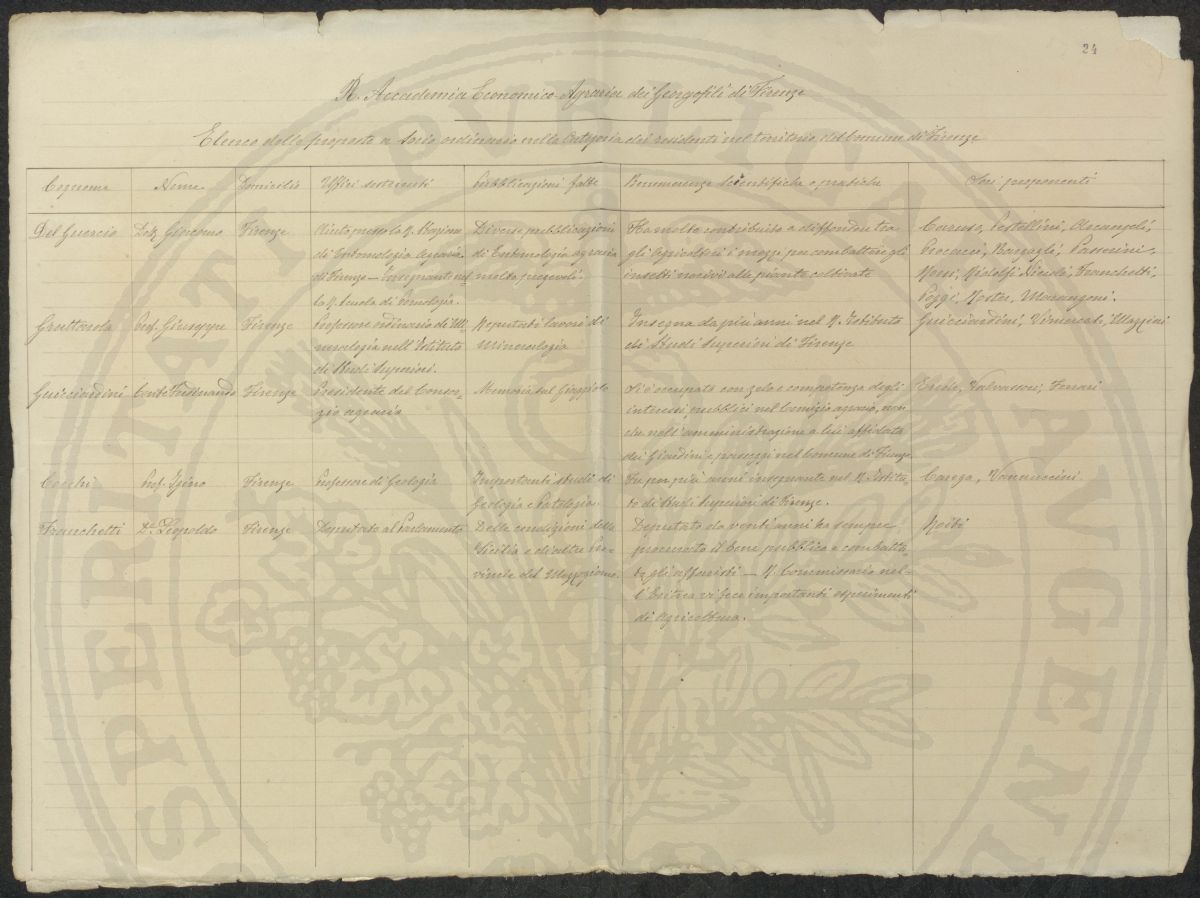 24
R. Accademia Economico-Agraria dei Georgofili di Firenze
Elenco delle proposte a Socio ordinario nella Categoria dei residenti nel territorio del Comune di Firenze
Cognome Nome Domicilio Uffici sostenuti Pubblicazioni fatte Benemerenze scientifiche o pratiche Soci proponenti
Del Guercio Dott. Giacomo Firenze Aiuto presso la R. Stazione Diverse pubblicazioni Ha molto contribuito a diffondere tra Caruso, Pestellini, Arcangeli,
di Entomologia Agraria di Entomologia agraria gli Agricoltori i mezzi per combattere gli Procacci, Bargagli, Passerini,
di Firenze — Insegnante nel molto pregevoli insetti nocivi alle piante coltivate Ridolfi Franchetti,
la R. Scuola di Pomologia. Poggi, Marangoni.
Grattarola Prof. Giuseppe Firenze Professore ordinario di Mi Reputati lavori di Insegna da più anni nel R. Istituto Guicciardini, Vimercati, Mazzini
neralogia nell'Istituto Mineralogia di Studi Superiori di Firenze
di Studi Superiori.
Guicciardini Conte Ferdinando Firenze Presidente del Consor- Memoria sul Giaggiolo Si è occupato con zelo e competenza degli Valvassori, Ferrari
zio agrario interessi pubblici nel Comizio agrario, non
che nell'amministrazione a lui affidata
dei Giardini e passeggi nel Comune di Firenze
Cocchi Prof. Igino Firenze Professore di Geologia Importanti studi di Fu per più anni insegnante nel R. Istitu Carega, Vannuccini
Geologia e to di Studi Superiori di Firenze.
Franchetti Bne Leopoldo Firenze Deputato al Parlamento Delle condizioni della Deputato da venti anni ha sempre
Sicilia e di altre Pro- procurato il bene pubblico e combattu-
vincie del Mezzogiorno. to gli affaristi — R. Commissario nel-
l'Eritrea vi fece importanti esperimenti
di Agricoltura.
PROSPERITATI PVBLICAE AVGENDAE